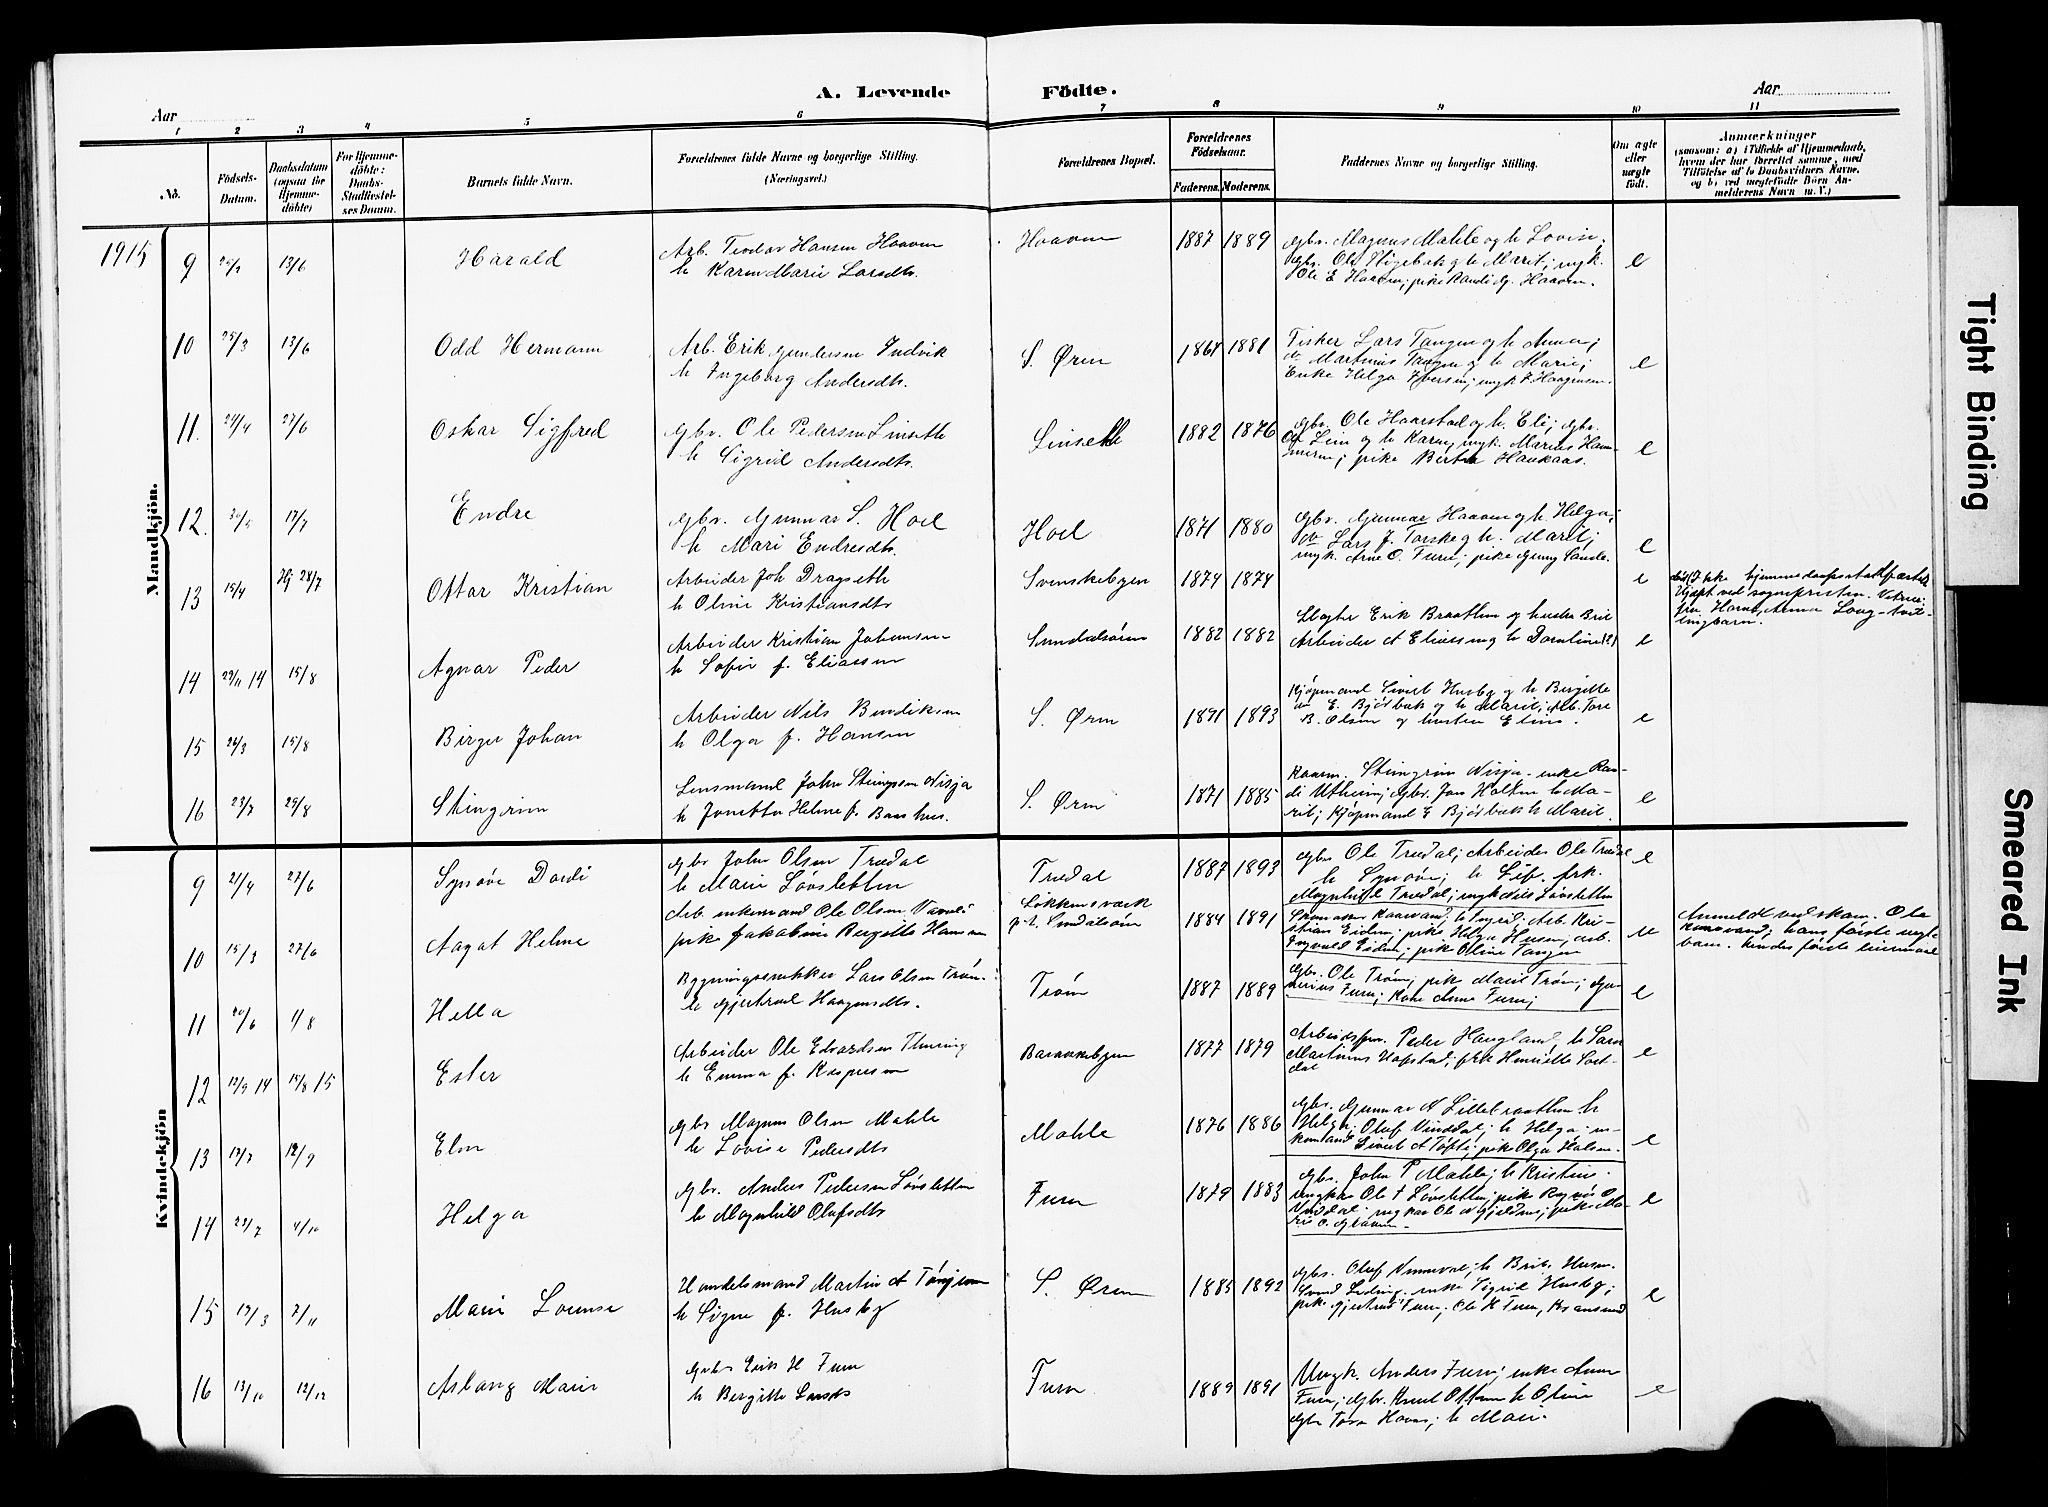 A. Levende Födte.
Aar
Aar
1 2 3 4 5 6 7 8 9 10 11
No.
Födsels-Datum.
Daabsdatum (ogsaa for Hjemme-döbte)
For Hjemme-döbte: Daabs-Stadfæstel-ses Datum.
Barnets fulde Navn.
Forældrenes fulde Navne og borgerlige Stilling. (Næringsvei.)
Forældrenes Bopæl.
Forældrenes Födselsaar.
Faderens. Moderens.
Faddernes Navne og borgerlige Stilling.
Om ægte eller uægte födt.
Anmærkninger (saasom: a) i Tilfælde af Hjemmedaab, hvem der har forrettet samme, med Tilföielse af to Daabsvidners Navne. og b) ved uægtefödte Börn An-melderens Navn m. V.)
Mandkjön.
1915
9 13/6 Harald
Arb. Teodor Hansen Haaven
h Karen Marie Larsdtr.
Haaven 1887 1889
gbr. Magnus Mahle og h Lovise;
gbr. Ole Stigebak og h Marit; ungk.
Ole E Haaven; pike Randi G. Haaven.
e
10 25/3 13/6 Odd Hermann
Arb. Erik Gundersen Indvik
h Ingeborg Andersdtr.
S. Øren 1864 1881
Fisker Lars Tangen og h Anna;
do Martinus Tangen og h Marie;
Enke Helga Iversen; ungk F. Haagensen.
e
11. 24/4 27/6 Oskar Sigfred
gbr. Ole Pedersen Linseth
h Sigrid Andersdtr.
Linseth 1882 1876
gbr. Ole Haarstad og h. Eli; gbr.
Ole Lein og h Karen; ungk. Marius Ham-
meren; pike Berta Haukaas.
e
12. 17/7 Endre
gbr. Gunnar S. Hoel
h Mari Endresdtr.
Hoel 1871 1880
gbr. Gunnar Haaven og h. Helga;
do Lars J. Torske og h. Marit;
ungk. Arne O. Furu; pike Gunny Sande.
e
13 15/4 Hj 28/7 Ottar Kristian
Arbeider Joh Dragseth
h Oline Kristiansdtr
Svenskebyen 1874 1874
e
Ikke hjemmedaapsstadfæstet
Hjdøpt ved sognepresten. Vidner:
14 29/11 14 15/8 Agnar Peder
Arbeider Kristian Johansen
h Sofie f. Eliassen
Sundalsøren 1882 1882
Slagter Erik Braathen og hustru Brit
Arbeider A Eliassen og h Dorntine (?)
e
15 26/3 15/8 Birger Johan
Arbeider Nils Bendiksen
h Olga f. Hansen
S. Øren 1891 1893
Kjøpmand Sivert Husby og h Birgitte
do E. Bjørbæk og h Marit; Arb. Tore
B. Olsen og hustru Eline.
e
16 23/7 29/8 Steingrim
Lensmand John Steingrimsen Nisja
h Jonetta Helene f. Baarhus.
S. Øren 1871 1885
Kaarm. Steingrim Nisja - enke Ran-
di Utheim; gbr. Jon Holten h Ma-
rit; Kjøpmand E Bjørbæk h Marit.
e
Kvindekjön
9 21/4 27/6 Synøve Dordi
gbr John Olsen Trædal
h Marie Løvsletten
Trædal 1887 1893
gbr Ole Trædal; Arbeider Ole Trædal
h Synøve; h Sif. frk.
Magnhild Trædal; ungk Nils Løvsletten
e
10 15/3 27/6 Aagot Helene
Arb. enkemand Ole Olsen
pike Jakobine Bergitte Hansen
Løkkensværk
p.t. Sundalsøren 1884 1891
Skomaker Kaarvand; h Ingrid; Arb. Kri-
stian Eiden; pike Helga Husen, arb.
Ingvald Eiden; pike Oline Tangen
u
Anmeldt ved skom. Ole
Kaarvand; hans første uegte
barn. hendes første leiermaal
11 20/6 1/8 Hella
Bygningssnekker Lars Olsen Trøen
h Gjertrud Haagensdtr.
Trøen 1887 1889
gbr. Ole Trøen; pik Marit Trøen;
Furu; Kone Anne Furu;
e
12 12/9 14 15/8 15 Ester
Arbeider Ole Edvardsen
h Emma f. Kaspersen
Barakkebyen 1877 1879
Arbeidsfor. Peder Haugland, h Sara
Martinus Hofstad; frk Henriette
e
13 17/7 12/9 Elen
gbr Magnus Olsen Mahle
h Lovise Pedersdtr
Mahle 1876 1886
gbr. Gunnar A Lillebraathen h
Helga; Oluf Vinddal; h Helga; en-
kemand Sivert A Tøfti; pike Olga Halsen.
e
14 22/7 4/10 Helga
gbr. Anders Pedersen Løvsletten
h Magnhild Olufsdtr
Furu 1879 1883
gbr. John P Mahle; h Kristine.
ungkar Ole P Løvsletten; pike Ragna O
Vinddal. ungkar Ole N Gjeldnes; pike Ma-
rit O. Haaven.
e
15 17/3 7/11 Marie Lovise
Handelsmand Martin A Tønnesen
h Signe f. Husby
S. Øren 1885 1892
gbr. Oluf h Brit. Husm.
enke Sigrid Husby;
pike Gjertrud Furu, Ole K Furu, Kr.sund
e
16 13/10 12/12 Aslaug Marie
Gbr Erik H Furu
h Bergitte Larsdtr
Furu 1889 1891
Ungk. Anders Furu; enke Anne
Furu; gbr. Knut Ottem h Oline
gbr Tore Hovn; h Mari.
e
Tight Binding
Smeared Ink